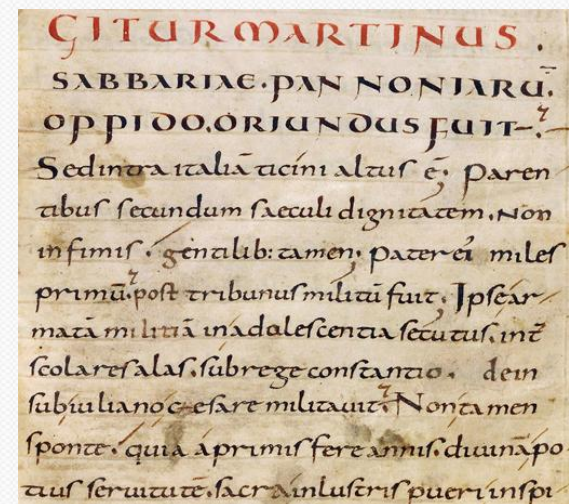 GITUR MARTINUS .
SABBARIAE. PANNONIARU̅.
OPPIDO. ORIUNDUS FUIT.
Sed intra italiā ticini altus ē; Paren
tibus secundum saeculi dignitatem. Non
infimis. gentilib: tamen; Pater ei miles
primū. post tribunus militū fuit; Ipse ar
matā militiā in adolescentia secutus. int̄
scolares alas. sub rege constantio. dein
sub iuliano cęsare militauit. Non tamen
sponte. quia a primis fere annis. diuinā po
tius seruitutē. sacra inlustris pueri inspi